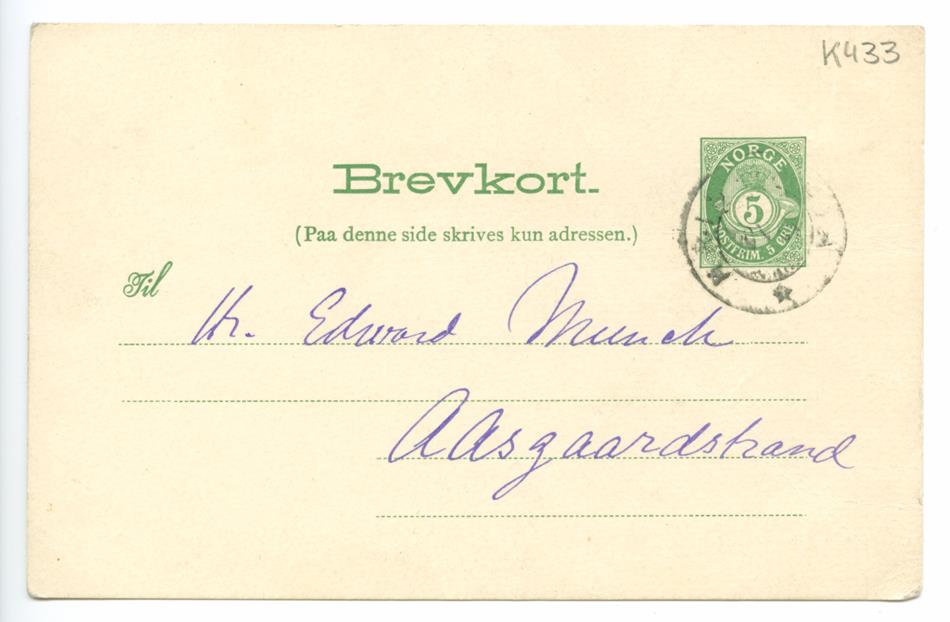 K433
Brevkort.
NORGE
5
POSTFRIM. 5 ØRE
(Paa denne side skrives kun adressen.)
Til
Hr. Edward Munch
AAsgaardstrand